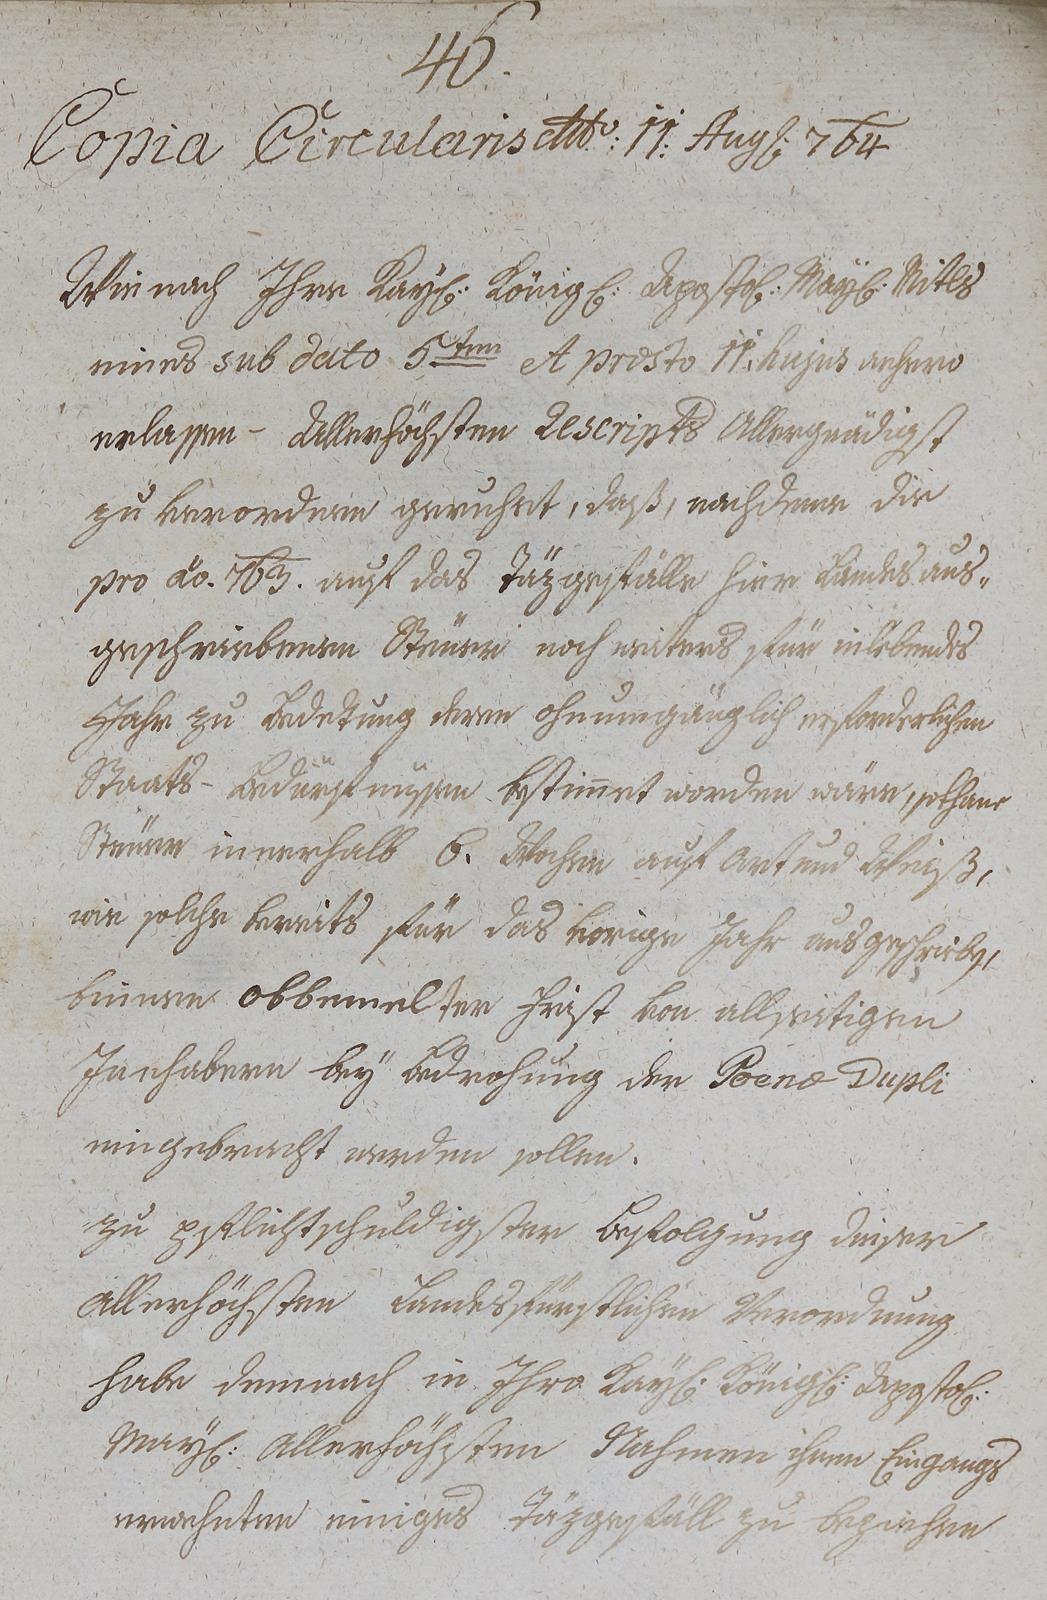 46.
Copia Circularis ddto: 11: Aug: 764
Wie nach Ihre Kayl: Königl: Apostol: May: Mitls
eines sub dato 5ten et præsto 11. hujus anhero
erlassen - Allerhöchsten Rescripts Allergnädigst
zu verordnen geruhet, daß, nachdeme die
pro ao. 763. auf das Täzgefälle hier Landes aus„
geschriebenen Steuer noch weiters für inlebendes
Jahr zu Bedekung deren ohnumgänglich erforderlichen
Staats- Bedürfnussen bestimet worden wäre, sothane
Steuer innerhalb 6. Wochen auf Art und Weiß,
wie solche bereits für das vorige Jahr ausgeschrieben,
binnen obbemelter Frist von allseitigen
Innhabern bey Bedrohung der Poenæ Dupli
eingebracht werden sollen.
zu pflichtschuldigster Befolgung dieser
Allerhöchsten Landesfürstlichen Verordnung
habe demnach in Ihro Kayl: Königl: Apostol:
May: Allerhöchsten Nahmen ihnen Eingangs
erwehnten einiges Täzgefäll zu beziehen